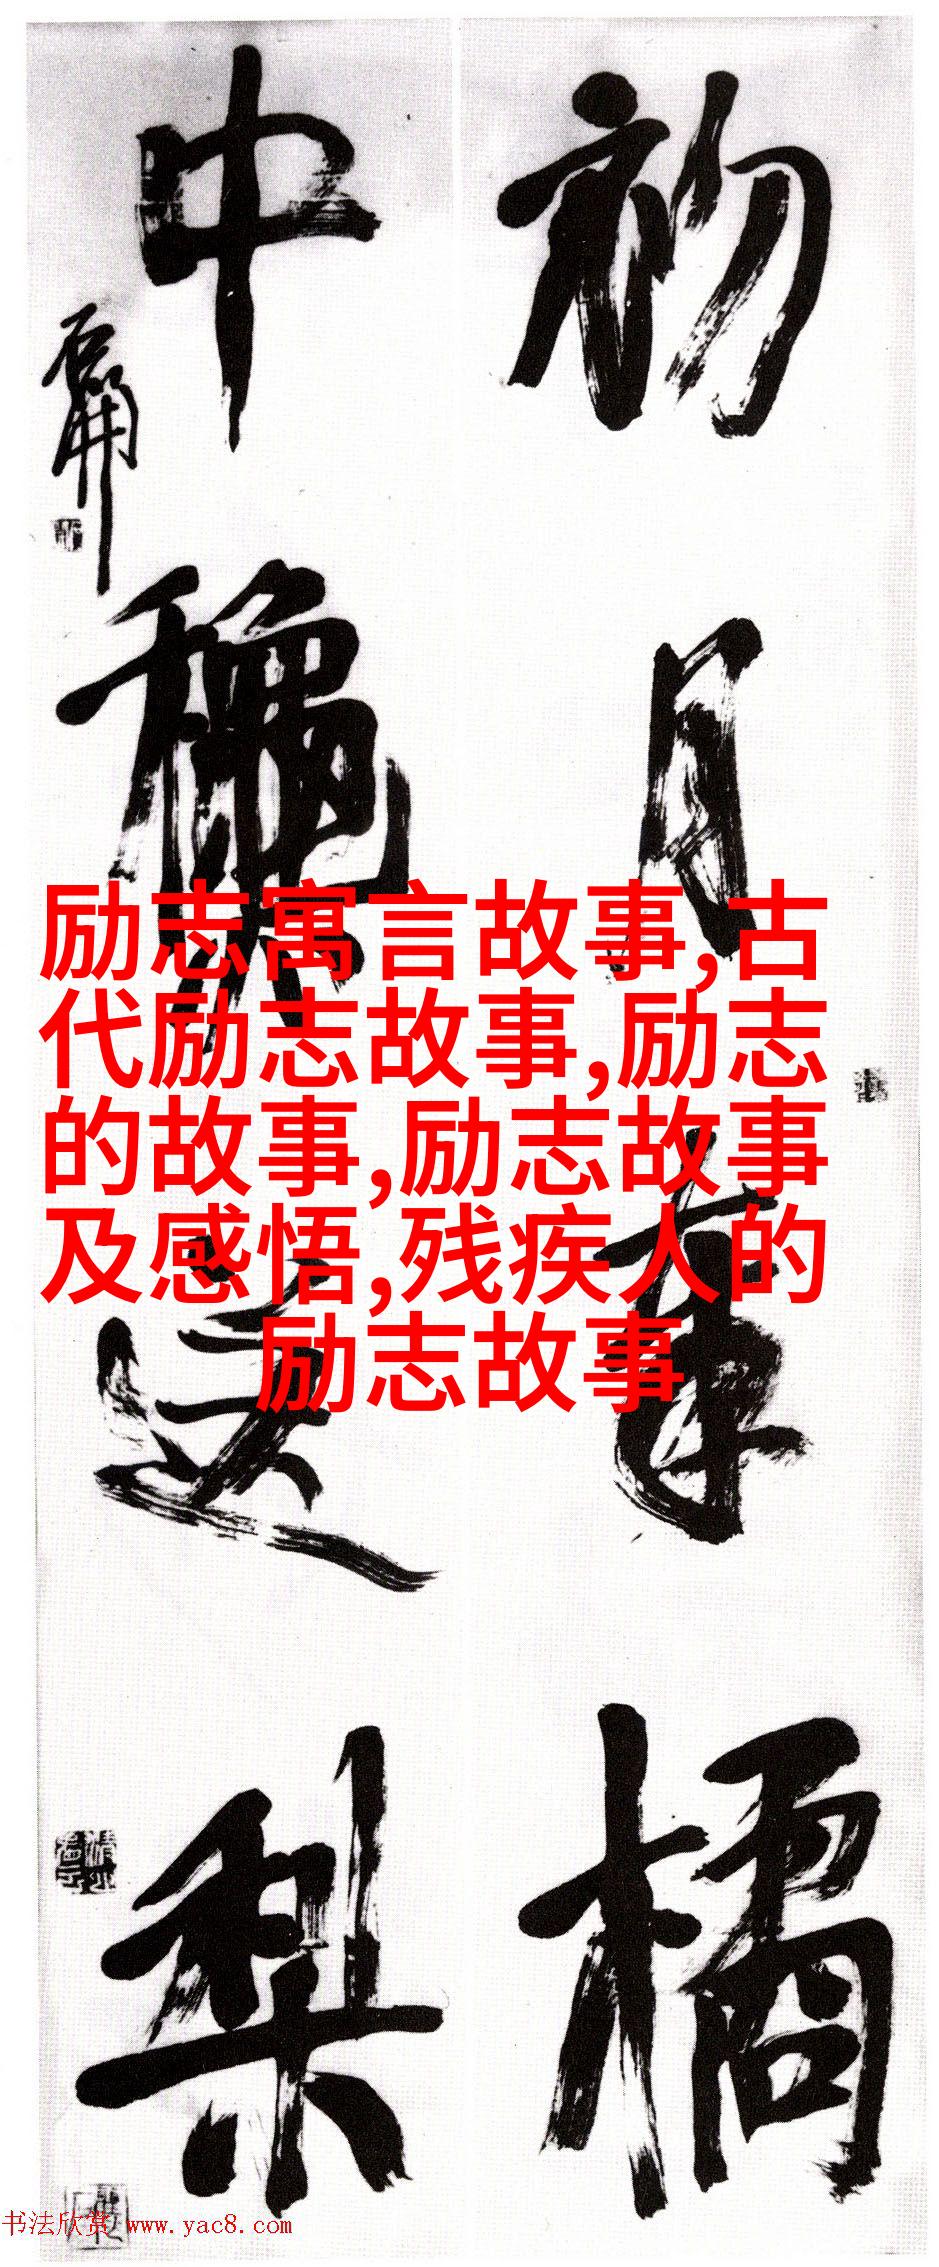 初月橘
中梨
励志寓言故事,古
代励志故事,励志
的故事,励志故事
及感悟,残疾人的
励志故事
书法欣赏 www.yac8.com